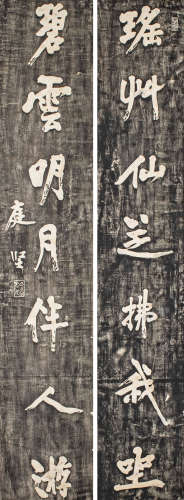 瑤艸仙芝拂我坐
碧雲明月伴人游
庭堅